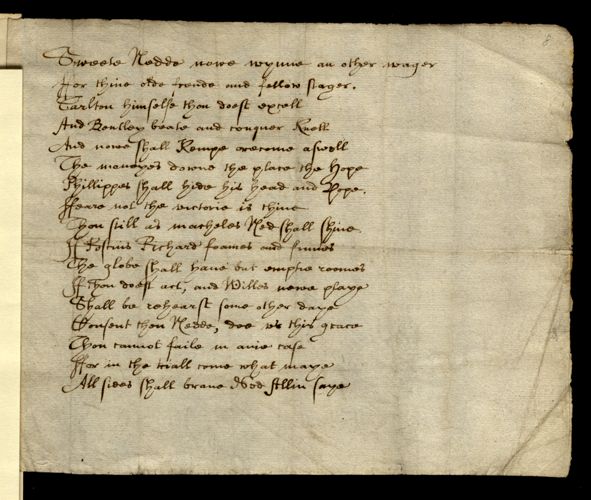 Sweete Nedde nowe wynne an other wager
ffor thine olde frende and fellow stager.
Tarlton himselfe thou doest excell
And Bentley beate and conquer Knell
And nowe shall Kempe orecome aswell
The moneyes downe the place the Hope
Phillippes shall hide his head and Pope.
ffeare not the victorie is thine
Thou still as macheles Ned shall shine
If Rossius Richard foames and fumes
The globe shall haue but emptie roomes
If thou doest act, and Willes newe playe
Shall be rehearst some other daye
Consent then Nedde, doe us this grace
Thou cannot faile in anie case
ffor in the triall come what maye
All sides shall braue Ned Allin saye
8